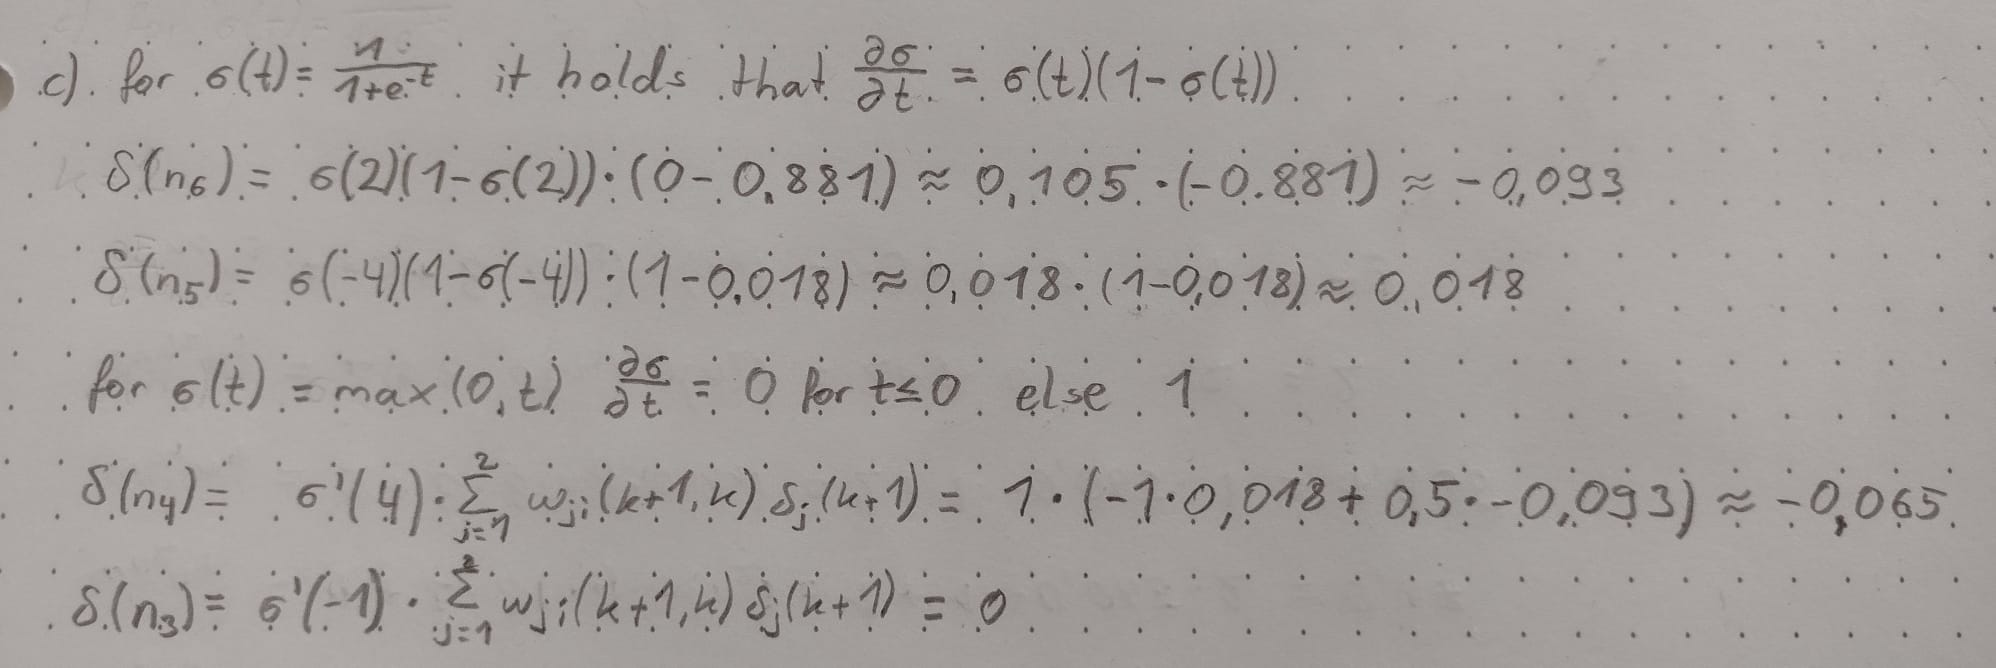 c) for σ(t) = 1/(1+e^-t) it holds that ∂σ/∂t = σ(t)(1-σ(t))
δ(n₆) = σ(2)(1-σ(2)) · (0-0,881) ≈ 0,105 · (-0.881) ≈ -0,093
δ(n₅) = σ(-4)(1-σ(-4)) · (1-0,018) ≈ 0,018 · (1-0,018) ≈ 0,018
for σ(t) = max(0,t) ∂σ/∂t = 0 for t≤0 else 1
δ(n₄) = σ'(4) · Σ_{j=1}^{2} w_ji(k+1,k) δ_j(k+1) = 1 · (-1·0,018 + 0,5·-0,093) ≈ -0,065
δ(n₃) = σ'(-1) · Σ_{j=1}^{2} w_ji(k+1,k) δ_j(k+1) = 0